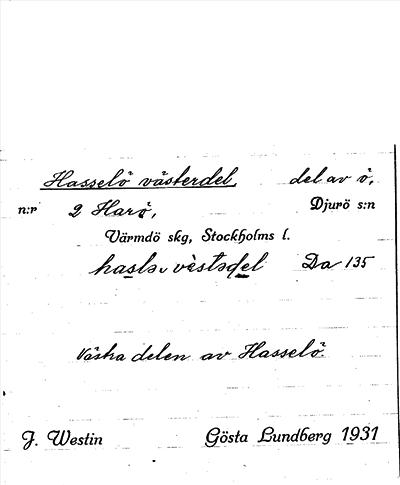 Hasselö västerdel, del av ö,
n:r 2 Harö, Djurö s:n
Värmdö skg, Stockholms l.
Da 135
Västra delen av Hasselö.
J. Westin Gösta Lundberg 1931